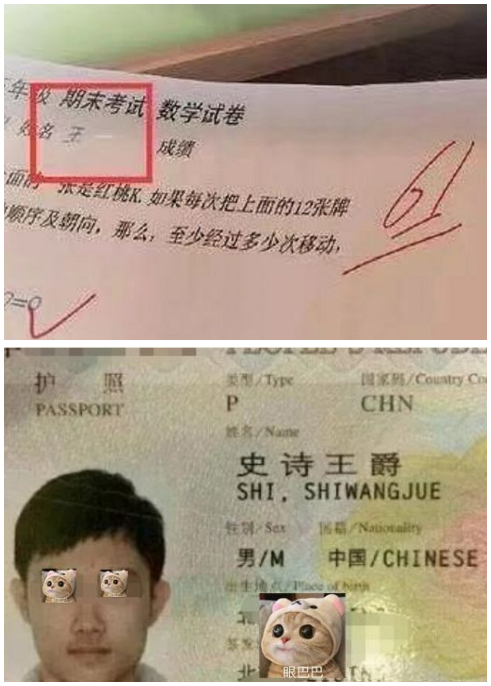 年级 期末考试 数学试卷
姓名 王
成绩
61
面的一张是红桃K,如果每次把上面的12张牌
顺序及朝向,那么,至少经过多少次移动,
=0
护 照
PASSPORT
类型/Type
国家码/Country Co
P
CHN
姓名/Name
史诗王爵
SHI, SHIWANGJUE
性别/Sex
国籍/Nationality
男/M
中国/CHINESE
出生地点/Place of birth
眼巴巴